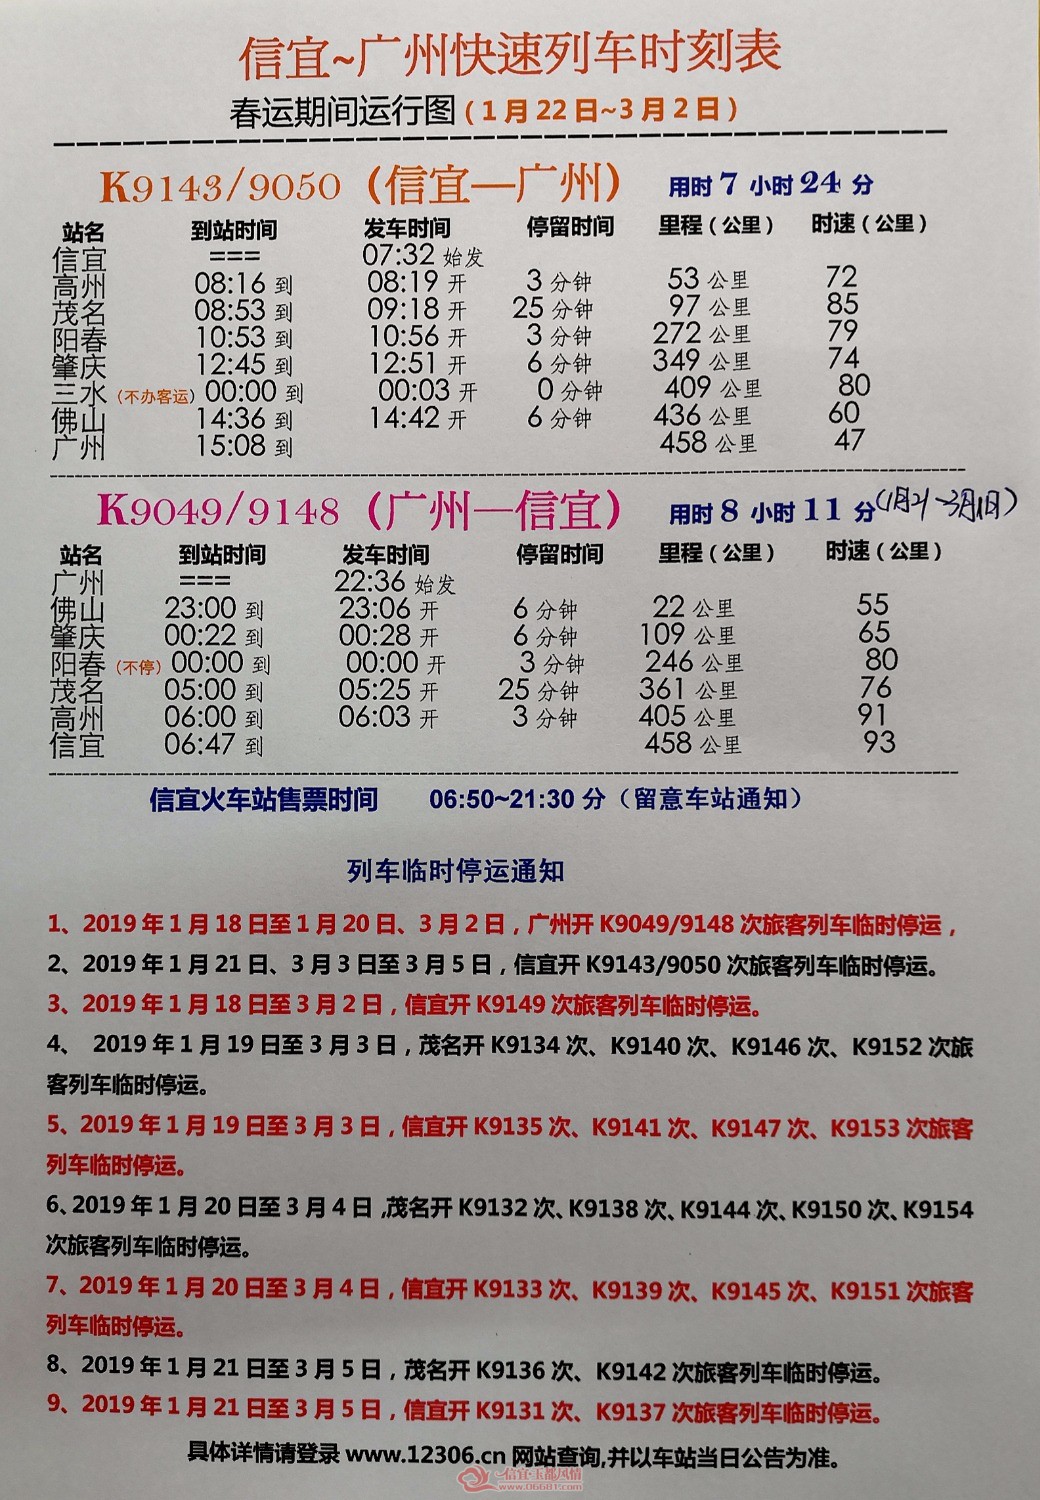 信宜~广州快速列车时刻表
春运期间运行图(1月22日~3月2日)
K9143/9050(信宜—广州) 用时7小时24分
站名 到站时间 发车时间 停留时间 里程(公里) 时速(公里)
信宜 === 07:32始发
高州 08:16到 08:19开 3分钟 53公里 72
茂名 08:53到 09:18开 25分钟 97公里 85
阳春 10:53到 10:56开 3分钟 272公里 79
肇庆 12:45到 12:51开 6分钟 349公里 74
三水(不办客运) 00:00到 00:03开 0分钟 409公里 80
佛山 14:36到 14:42开 6分钟 436公里 60
广州 15:08到 458公里 47
K9049/9148(广州—信宜) 用时8小时11分(1月21~3月1日)
站名 到站时间 发车时间 停留时间 里程(公里) 时速(公里)
广州 === 22:36始发
佛山 23:00到 23:06开 6分钟 22公里 55
肇庆 00:22到 00:28开 6分钟 109公里 65
阳春(不停) 00:00到 00:00开 3分钟 246公里 80
茂名 05:00到 05:25开 25分钟 361公里 76
高州 06:00到 06:03开 3分钟 405公里 91
信宜 06:47到 458公里 93
信宜火车站售票时间 06:50~21:30分(留意车站通知)
列车临时停运通知
1、2019年1月18日至1月20日、3月2日,广州开K9049/9148次旅客列车临时停运,
2、2019年1月21日、3月3日至3月5日,信宜开K9143/9050次旅客列车临时停运。
3、2019年1月18日至3月2日,信宜开K9149次旅客列车临时停运。
4、 2019年1月19日至3月3日,茂名开K9134次、K9140次、K9146次、K9152次旅
客列车临时停运。
5、2019年1月19日至3月3日,信宜开K9135次、K9141次、K9147次、K9153次旅客
列车临时停运。
6、2019年1月20日至3月4日,茂名开K9132次、K9138次、K9144次、K9150次、K9154
次旅客列车临时停运。
7、2019年1月20日至3月4日,信宜开K9133次、K9139次、K9145次、K9151次旅客
列车临时停运。
8、2019年1月21日至3月5日,茂名开K9136次、K9142次旅客列车临时停运。
9、2019年1月21日至3月5日,信宜开K9131次、K9137次旅客列车临时停运。
具体详情请登录www.12306.cn网站查询,并以车站当日公告为准。
信宜玉都风情
www.06681.com